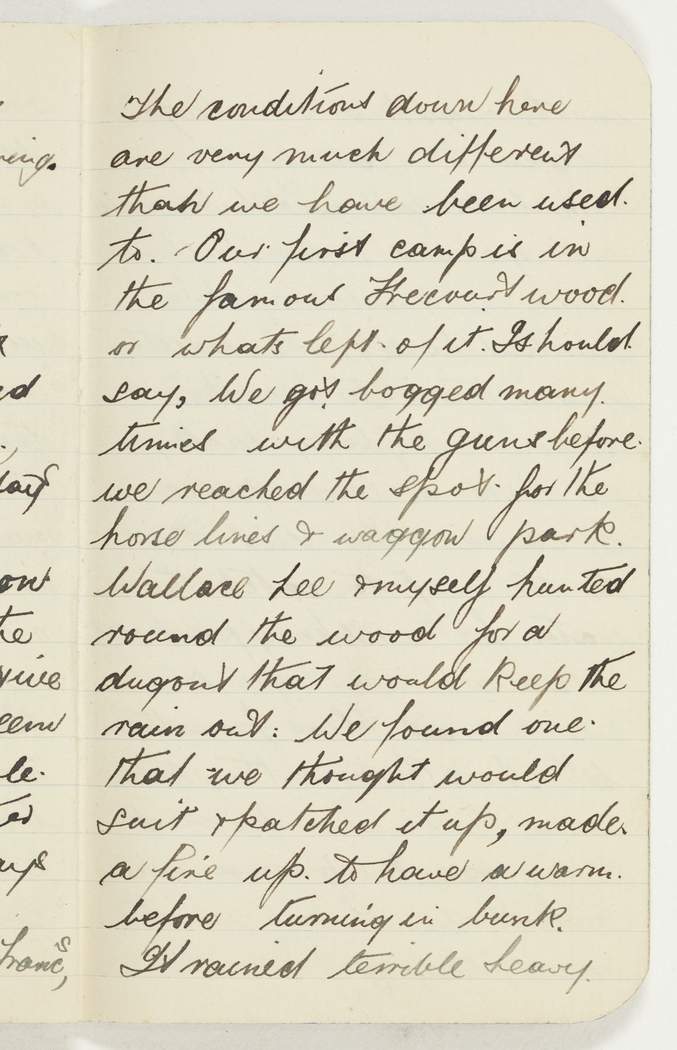 The conditions down here
are very much different
than we have been used.
to. Our first camp is in
the famous Frecourt wood.
or whats left. of it. I should
say, We got bogged many.
times with the guns before.
we reached the spot. for the
horse lines & waggon park.
Wallace Lee & myself hunted
round the wood for a
dugout that would keep the
rain out: We found one.
that we thought would
suit & patched it up, made.
a fire up. to have a warm.
before turning in bunk.
It rained terrible heavy.